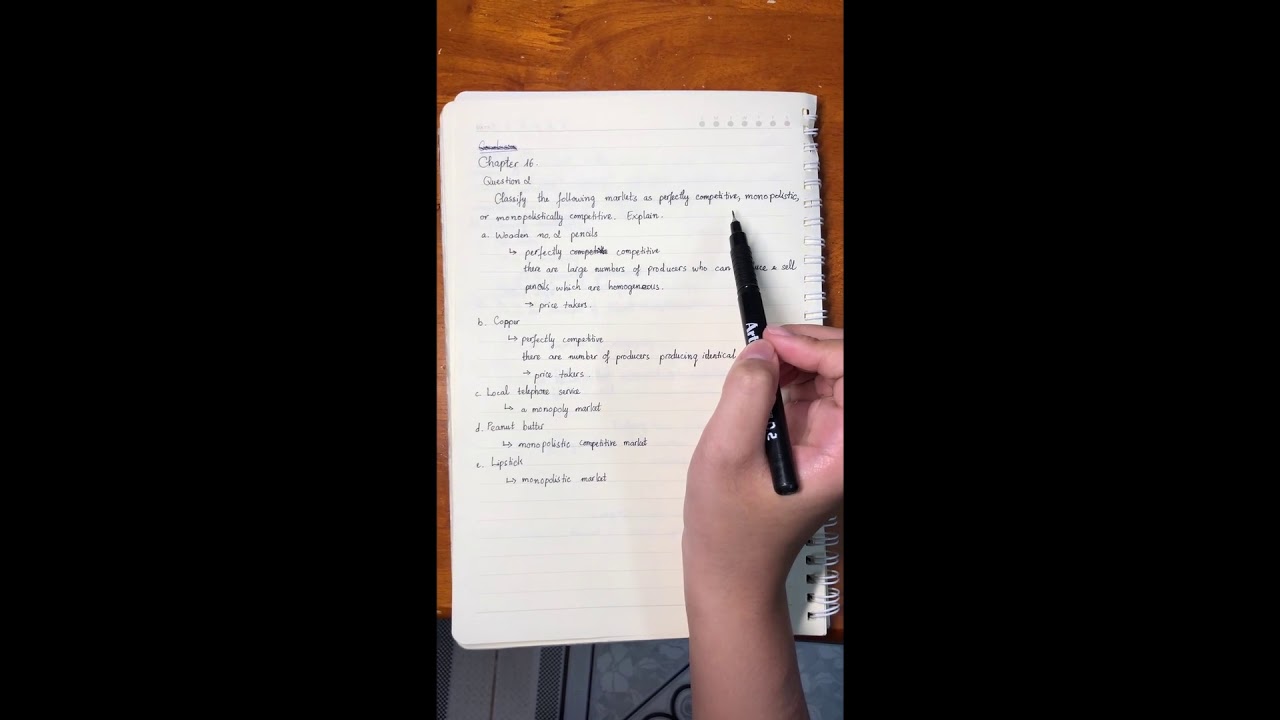 Chapter 16.
Question 2
Classify the following markets as perfectly competitive, monopolistic,
or monopolistically competitive. Explain.
a. Wooden no. 2 pencils
↳ perfectly competitive
there are large numbers of producers who can & sell
pencils which are homogeneous.
→ price takers.
b. Copper
↳ perfectly competitive
there are number of producers producing identical
→ price takers.
c. Local telephone service
↳ a monopoly market
d. Peanut butter
↳ monopolistic competitive market
e. Lipstick
↳ monopolistic market